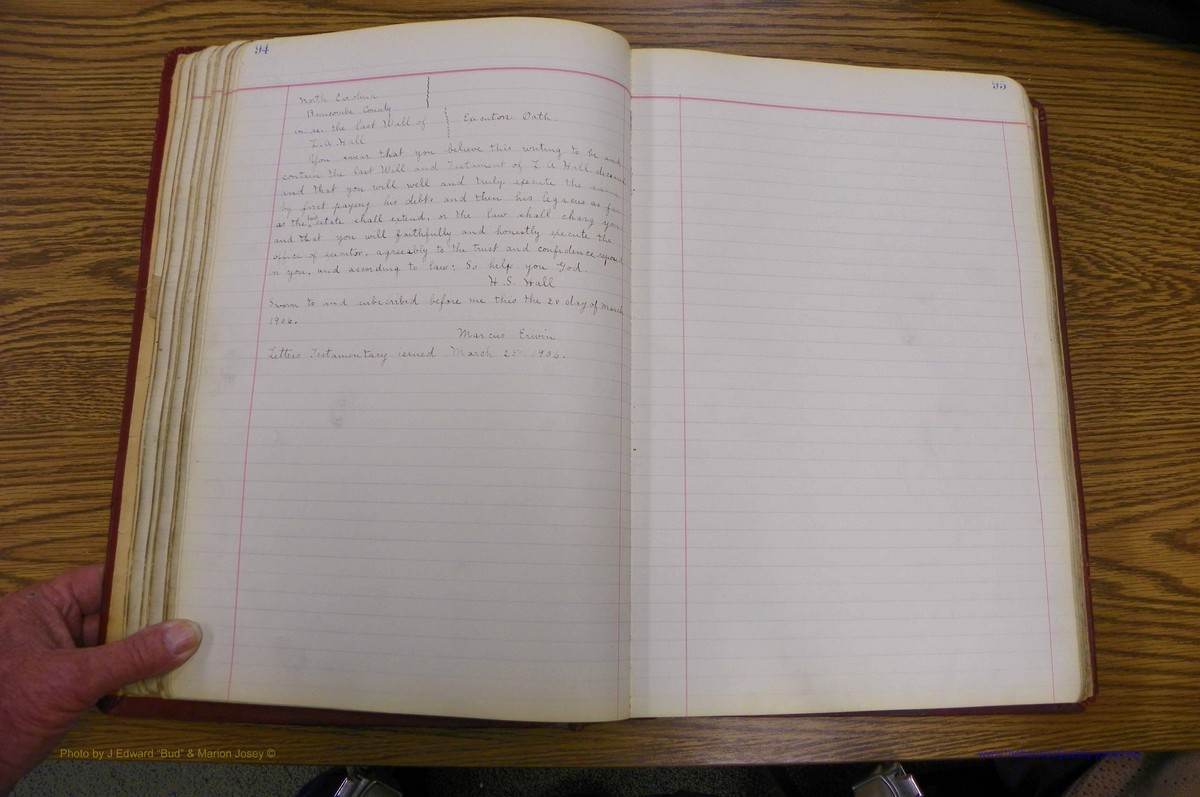 94
North Carolina
Buncombe County
in re the last Will of
Z. A. Hall
Executors Oath.
You swear that you believe this writing to be and
contain the last Will and Testament of Z A Hall deceased
and that you will well and truly execute the same
by first paying his debts and then his legacies as far
as the said estate shall extend, or the law shall charg you
and that you will faithfully and honestly execute the
office of executor, agreeably to the trust and confidence reposed
in you, and according to law: So help you God.
H. S. Hall
Sworn to and subscribed before me this the 28 day of March
1906.
Marcus Erwin
Letters Testamentary issued March 28 1906.
95
Photo by J Edward "Bud" & Marion Josey ©